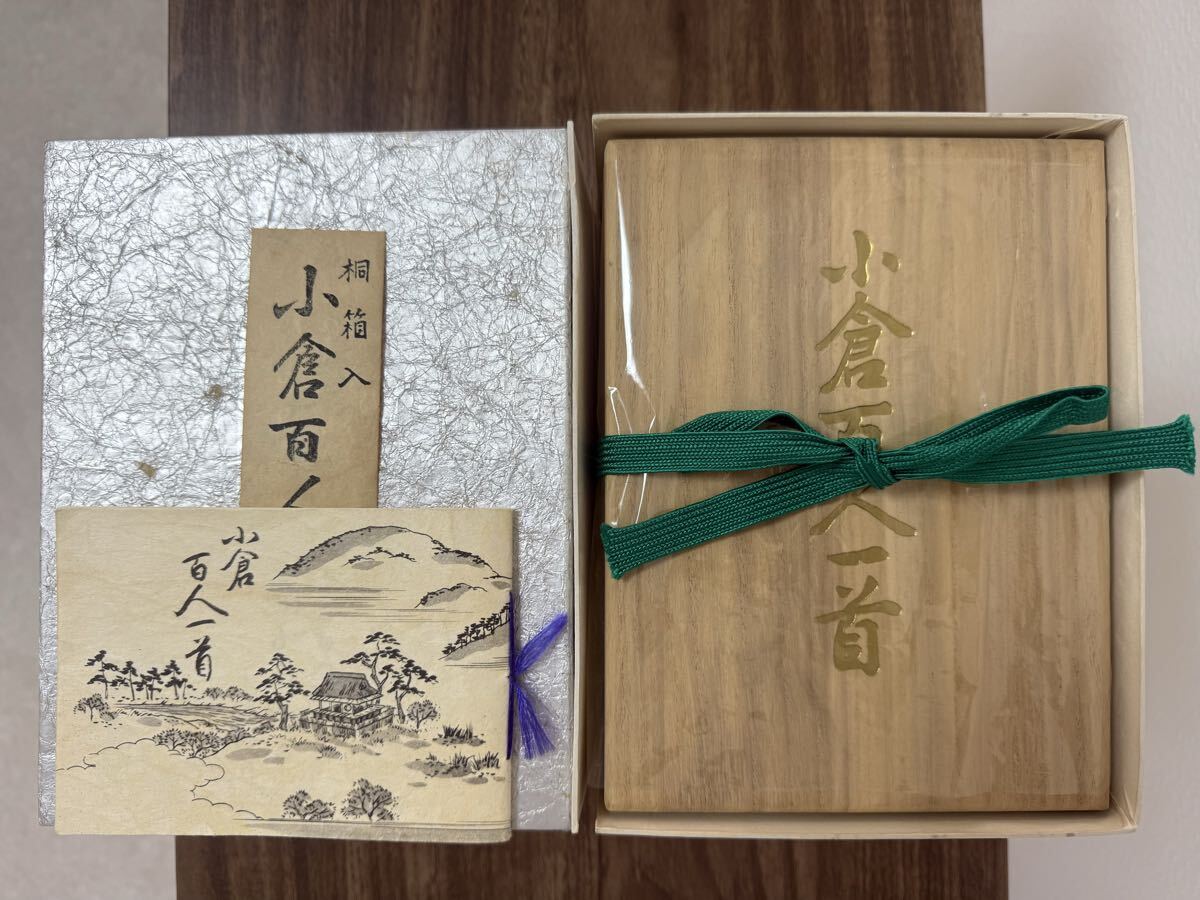 桐箱入
小倉百人
小倉
百人一首
小倉百人一首